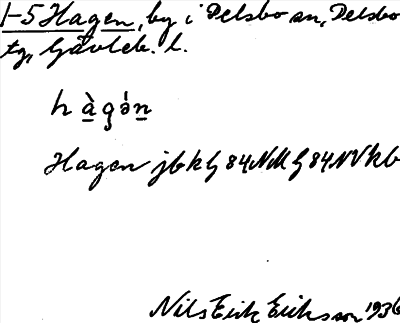 1-5 Hagen, by i Delsbo sn, Delsbo
tg, Gävleb. l.
h à g ó n
Hagen jbkG 84NM G 84NV kb
Nils Erik Eriksson 1936